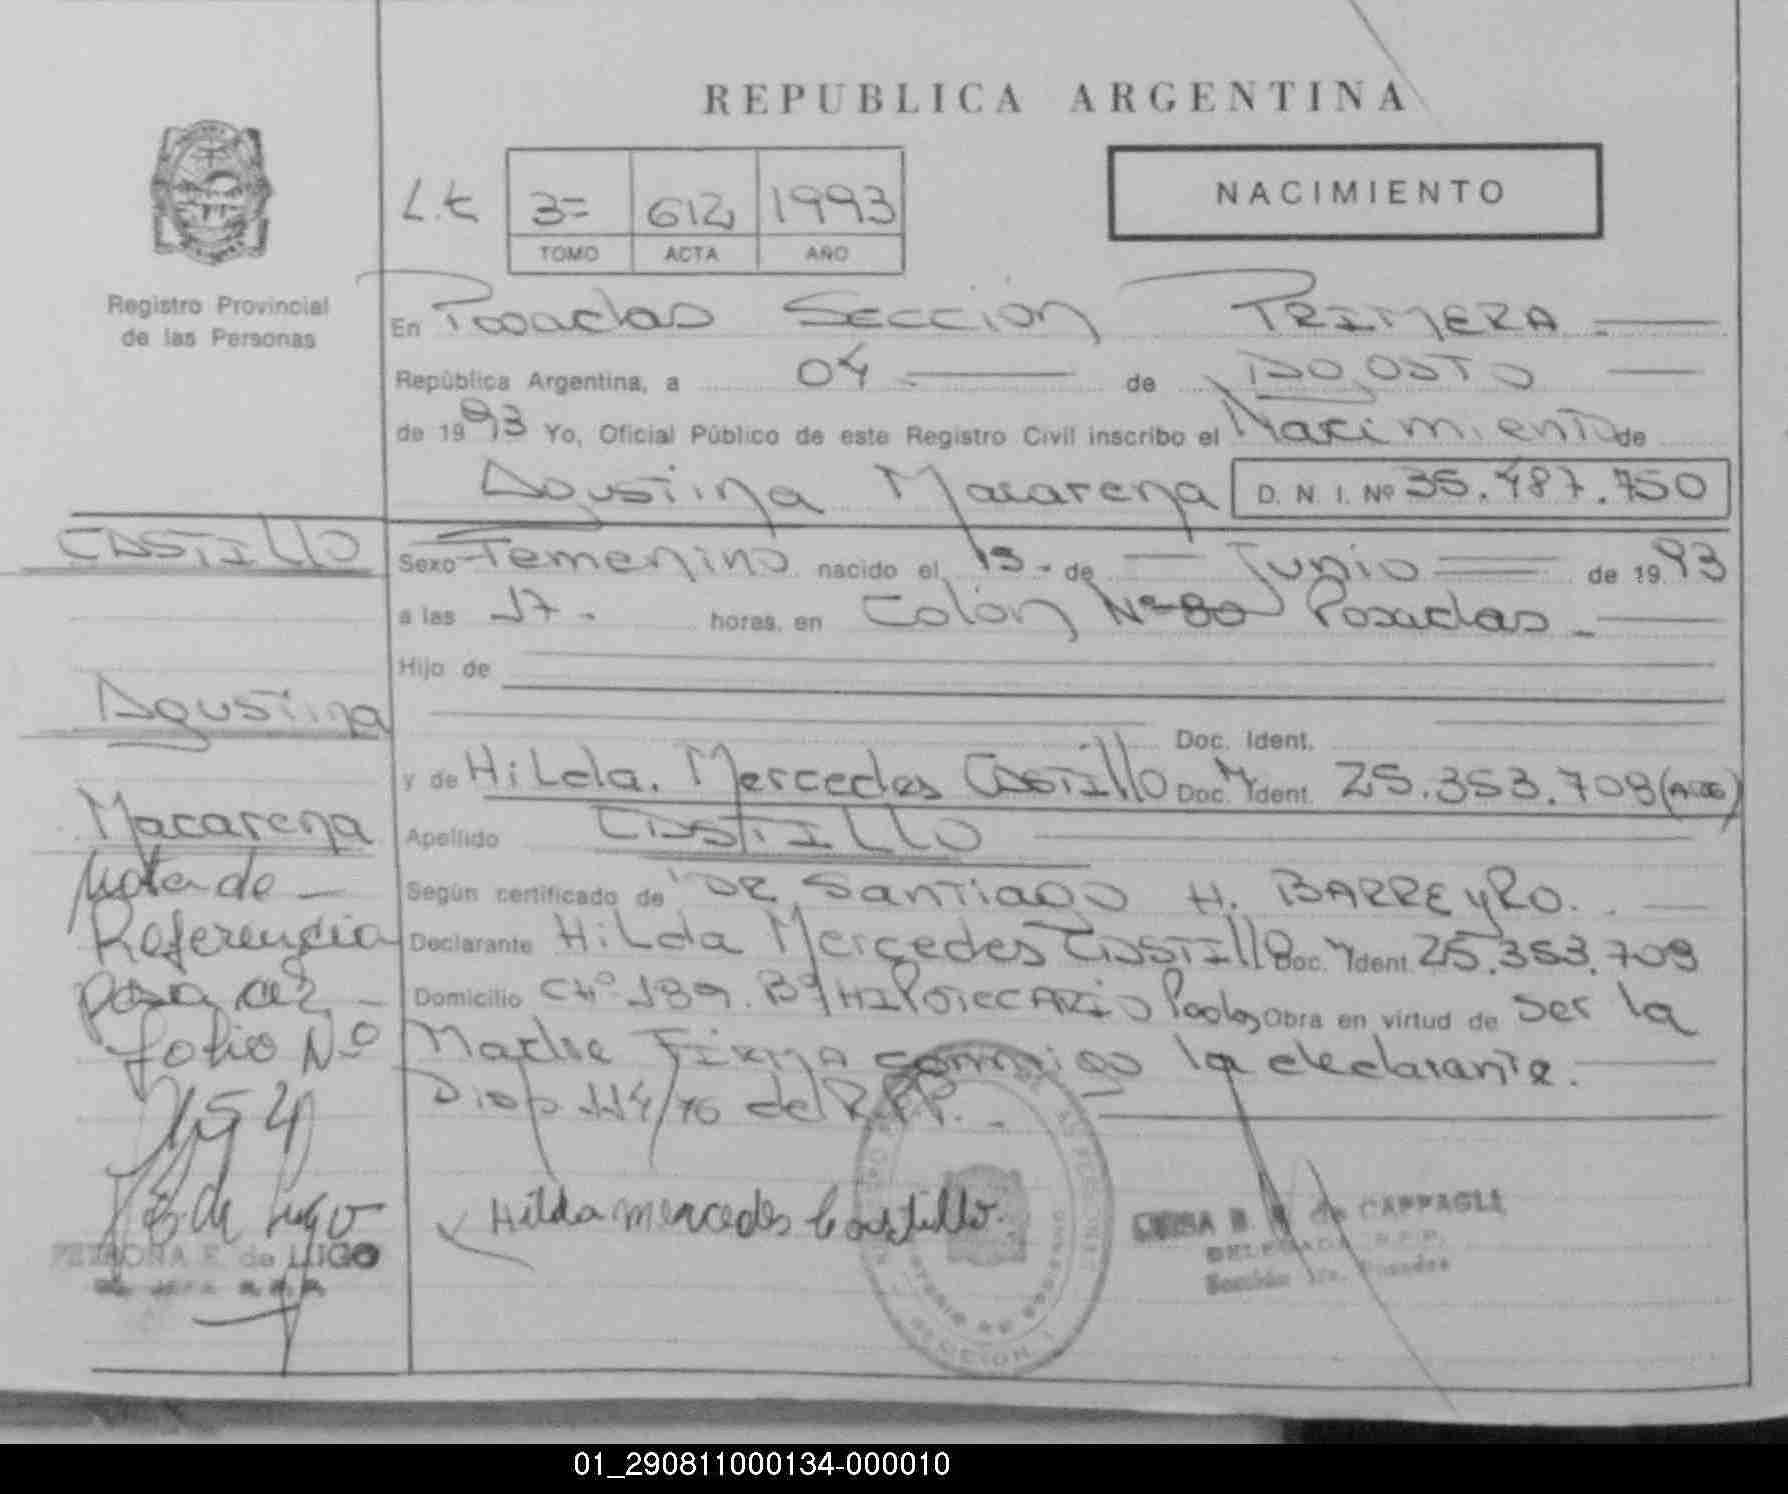 REPUBLICA ARGENTINA
NACIMIENTO
L.t 3= 612 1993
TOMO ACTA AÑO
Registro Provincial
de las Personas
En Posadas Sección PRIMERA
República Argentina, a 04 de Agosto
de 1993 Yo, Oficial Público de este Registro Civil inscribo el Nacimiento de
Agustina Macarena D. N. I. Nº 35.487.750
CASTILLO
Sexo Femenino nacido el 13 de Junio de 1993
a las 17 horas, en Colón Nº 80 Posadas
Hijo de
Doc. Ident.
y de Hilda Mercedes CASTILLO Doc. Ident. 25.353.709
Apellido CASTILLO
Según certificado de DR Santiago H. BARREyRO.
Declarante Hilda Mercedes CASTILLO Doc. Ident. 25.353.709
Domicilio CHº 189. Bº HIPOTECARIO Pdas Obra en virtud de ser la
Madre Firma conmigo la declarante.
Disp 114/76 del R.P.P.
Agustina
Macarena
Nota de
Referencia
pasa al
folio Nº
154
Hilda mercedes Castillo
PETRONA E. de LUGO
de CAPPAGLI
DELEGADA R.P.P.
Sección 1ra. Posadas
SECCION 1
01_290811000134-000010